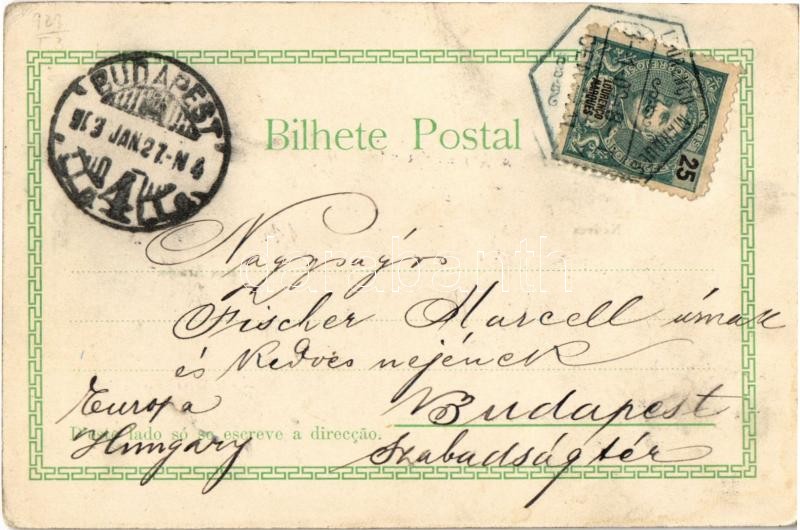 BUDAPEST
913 JAN.27.-N4
4
LOURENÇO MARQUES
25
Bilhete Postal
darabanth
Nagyságos
Fischer Marcell úrnak
és kedves nejének
Europa
Budapest
D'este lado só se escreve a direcção.
Hungary
Szabadságtér